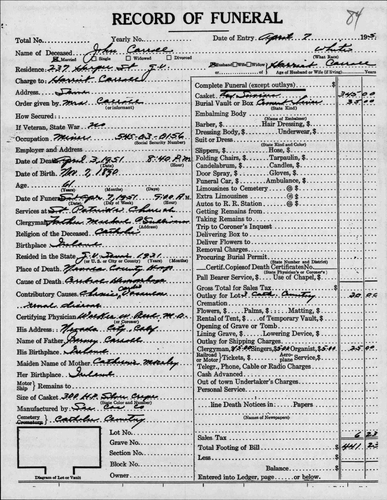 RECORD OF FUNERAL
84
Total No. Yearly No. Date of Entry April 7 195
Name of Deceased John Carroll White
Married Single Widowed Divorced (What Race)
Residence 237 St. G.V. Husband Wife of Harriet Carroll
or Age of Husband or Wife (If living) Years
Charge to Harriet Carroll
Address Same
Order given by Mrs Carroll
(or informant)
How Secured
If Veteran, State War no
Occupation Miner 545-03-0156
(Social Security Number)
Employer and Address
Date of Death April 3, 1951 8:40 P.M.
Date of Birth Nov. 7, 1890
Age 61
(Years) (Months) (Days)
Date of Funeral Sat Apr 7, 1951 9:00 A.M.
(Date) (Day of Week) (Hour)
Services at St Patricks Church
Clergyman Father Michael O'Sullivan
Religion of the Deceased Catholic
Birthplace Ireland
Resided in the State G.V. Since 1921
(or U. S. or City or County) (Years) (Months)
Place of Death Nevada County Hosp
Cause of Death Cerebral Hemorrhage
Contributory Causes
Certifying Physician M.D.
His Address Nevada City Calif
Name of Father Carroll
His Birthplace Ireland
Maiden Name of Mother Catherine
Her Birthplace Ireland
Motor Ship Remains to
Size of Casket
(State Color and Number)
Manufactured by
Cemetery Crematory Catholic Cemetery
Lot No.
Grave No.
Section No.
Block No.
Owner
Diagram of Lot or Vault
Complete Funeral (except outlays) $
Casket 345 00
Burial Vault or Box 35 00
(State Kind)
Embalming Body
(Name of Embalmer)
Barber, $ Hair Dressing, $
Dressing Body, $ Underwear, $
Suit or Dress
(State Kind and Color)
Slippers, $ Hose, $
Folding Chairs, $ Tarpaulin, $
Candelabrum, $ Candles, $
Door Spray, $ Gloves, $
Funeral Car, $ Ambulance, $
Limousines to Cemetery @ $
Extra Limousines @ $
Autos to R. R. Station @ $
Getting Remains from
Taking Remains to
Trip to Coroner's Inquest
Delivering Box to
Deliver Flowers to
Removal Charges
Procuring Burial Permit
(State Number and District)
Certif. Copies of Death Certificate No.
(State Physician's or Coroner's)
Pall Bearer Service, $ Use of Chapel, $
Gross Total for Sales Tax $
Outlay for Lot Cath Cemetery 20 00
Cremation
Flowers, $ Palms, $ Matting, $
Rental of Tent, $ of Temporary Vault, $
Opening of Grave or Tomb
Lining Grave, $ Lowering Device, $
Outlay for Shipping Charges
Clergyman, $ Singers, $ Organist, $ 25 00
Railroad Motor Tickets, $ Aeroplane Service, $
Telegr., Phone, Cable or Radio Charges
Cash Advanced
Out of town Undertaker's Charges
Personal Service
line Death Notices in Papers
(Names of Newspapers)
Sales Tax 6 23
Total Footing of Bill $ 441 23
Less
Balance $
Entered into Ledger, page or below.